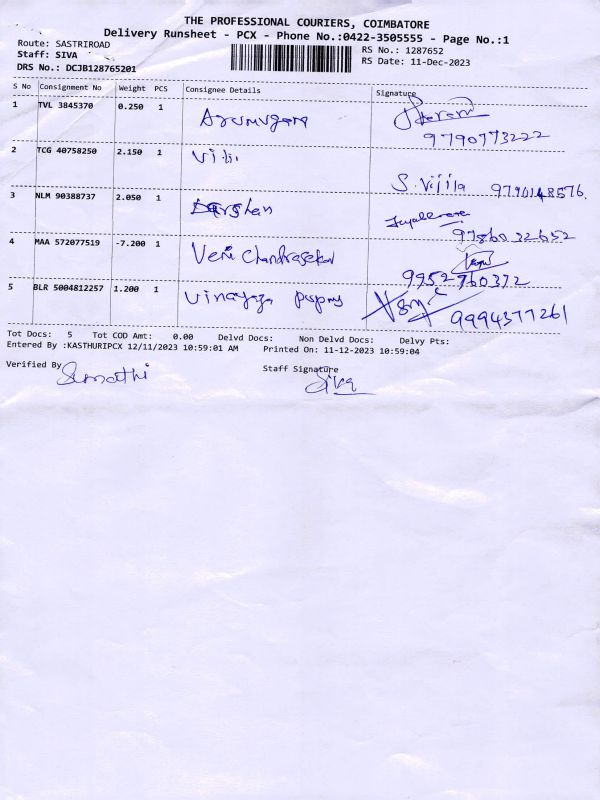 THE PROFESSIONAL COURIERS, COIMBATORE
Delivery Runsheet - PCX - Phone No.:0422-3505555 - Page No.:1
Route: SASTRIROAD RS No.: 1287652
Staff: SIVA RS Date: 11-Dec-2023
DRS No.: DCJB128765201
S No Consignment No Weight PCS Consignee Details Signature
1 TVL 3845370 0.250 1 Arumugam
9790773222
2 TCG 40758250 2.150 1 Viji
S. Vijila 9790148576.
3 NLM 90388737 2.050 1 Darshan
9786032652
4 MAA 572077519 -7.200 1 Veni Chandrasekar
9952760372
5 BLR 5004812257 1.200 1 Vinayaga
9994377261
Tot Docs: 5 Tot COD Amt: 0.00 Delvd Docs: Non Delvd Docs: Delvy Pts:
Entered By :KASTHURIPCX 12/11/2023 10:59:01 AM Printed On: 11-12-2023 10:59:04
Verified By Sumathi Staff Signature Siva